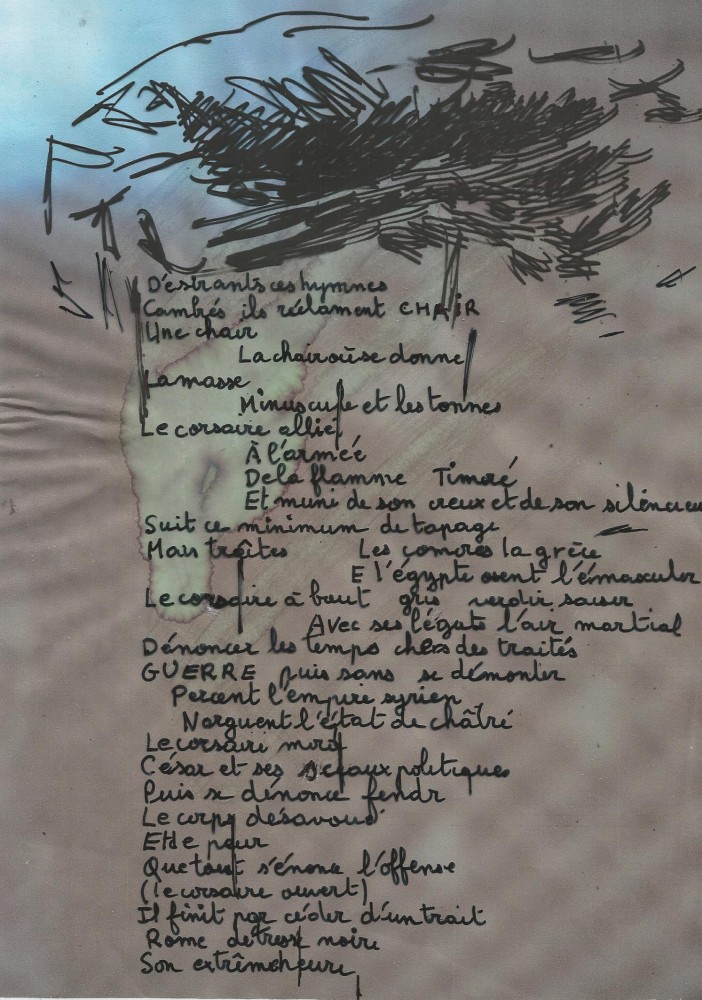 D'estrants ces hymnes
Cambrés ils réclament CHAIR
Une chair
La chair où se donne
La masse
Minuscule et les tonnes
Le corsaire allié
À l'armée
De la flamme Timoré
Et muni de son creux et de son silencieux
Suit ce minimum de tapage
Mais traîtes Les comores la grèce
E l'égypte osent l'émasculer
Le corsaire à bout gris verdir saisir
Avec ses légats l'air martial
Dénoncer les temps chers des traités
GUERRE puis sans se démonter
Percent l'empire syrien
Narguent l'état de châtré
Le corsaire mord
César et ses sceaux politiques
Puis se dénonce fendr
Le corps désavoué
Et de peur
Que tout s'énonce l'offense
(le corsaire ouvert)
Il finit par céder d'un trait
Rome detresse noire
Son extrême heure